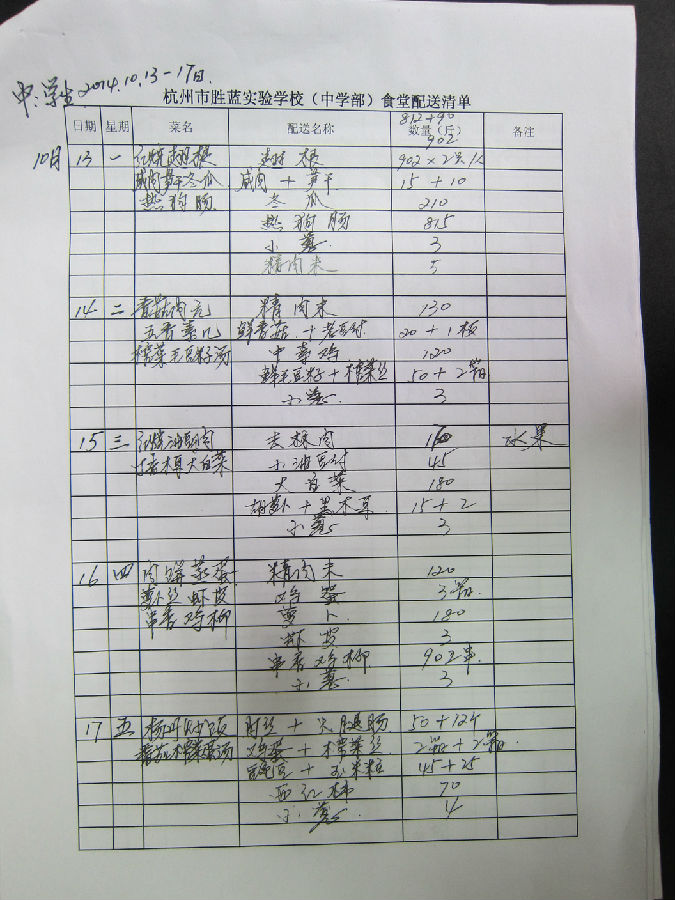 中学生 2014.10.13-17日
杭州市胜蓝实验学校（中学部）食堂配送清单
812+90
日期 星期 菜名 配送名称 数量（斤） 备注
902
10月 13 一 红烧翅根 翅根 902×2
咸肉笋干冬瓜 咸肉+笋干 15+10
热狗肠 冬瓜 210
热狗肠 815
小葱 3
精肉末 5
14 二 香菇肉元 精肉末 130
五香 鲜香菇+老豆付 20+1板
榨菜毛豆籽汤 120
鲜毛豆籽+榨菜丝 50+2箱
小葱 3
15 三 红烧油豆肉 去板肉 水果
大白菜 小油豆付 45
大白菜 180
胡萝卜+黑木耳 15+2
小葱 3
16 四 肉蒸蛋 精肉末 120
萝卜丝虾皮 鸡蛋 3箱
串香鸡柳 萝卜 180
虾皮 3
串香鸡柳 902串
小葱 3
17 五 杨州炒饭 肉丝+火腿肠 50+12个
番茄榨菜蛋汤 鸡蛋+榨菜丝 2箱+2箱
豌豆+玉米粒 45+25
西红柿 70
小葱 4